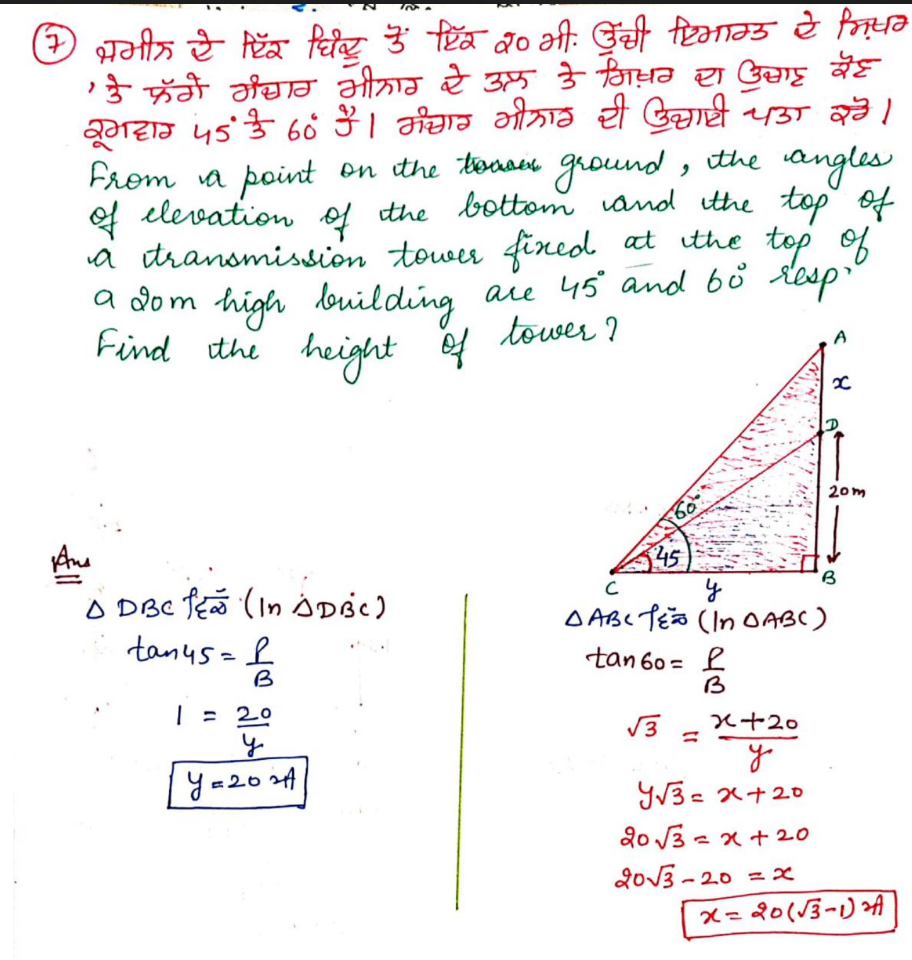 ⑦ ਜ਼ਮੀਨ ਦੇ ਇੱਕ ਬਿੰਦੂ ਤੋਂ ਇੱਕ 20 ਮੀ: ਉੱਚੀ ਇਮਾਰਤ ਦੇ ਸਿਖ਼ਰ
'ਤੇ ਲੱਗੇ ਸੰਚਾਰ ਮੀਨਾਰ ਦੇ ਤਲ ਤੇ ਸਿਖ਼ਰ ਦਾ ਉਚਾਣ ਕੋਣ
ਕ੍ਰਮਵਾਰ 45° ਤੇ 60° ਹੈ। ਸੰਚਾਰ ਮੀਨਾਰ ਦੀ ਉਚਾਈ ਪਤਾ ਕਰੋ।
From a point on the ground, the angles
of elevation of the bottom and the top of
a transmission tower fixed at the top of
a 20m high building are 45° and 60° resp.
Find the height of tower?
A
x
D
20m
60°
45
C
y
B
Ans
△ DBC ਵਿੱਚ (In △DBC)
tan45 = P/B
1 = 20/y
y = 20 ਮੀ
△ABC ਵਿੱਚ (In △ABC)
tan60 = P/B
√3 = x+20/y
y√3 = x+20
20√3 = x+20
20√3-20 = x
x = 20(√3-1) ਮੀ